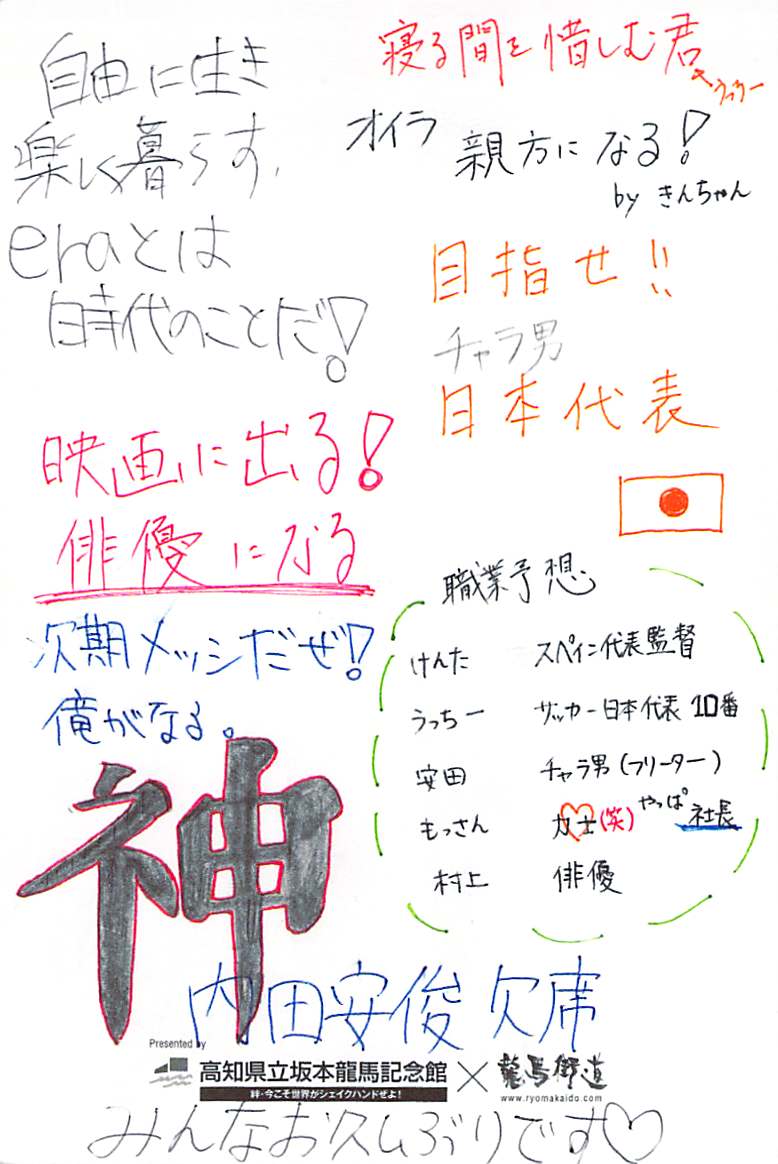 自由に生き
楽しく暮らす、
eraとは
時代のことだ!
寝る間を惜しむ君
オイラ 親方になる!
by きんちゃん
目指せ!!
チャラ男
日本代表
映画に出る!
俳優になる
次期メッシだぜ!
俺がなる。
職業予想
けんた スペイン代表監督
うっちー サッカー日本代表 10番
安田 チャラ男(フリーター)
もっさん 力士(笑) やっぱ社長
村上 俳優
神
内田安俊 欠席
Presented by
高知県立坂本龍馬記念館 × 龍馬街道
絆・今こそ世界がシェイクハンドぜよ!
www.ryomakaido.com
みんなお久しぶりです♡